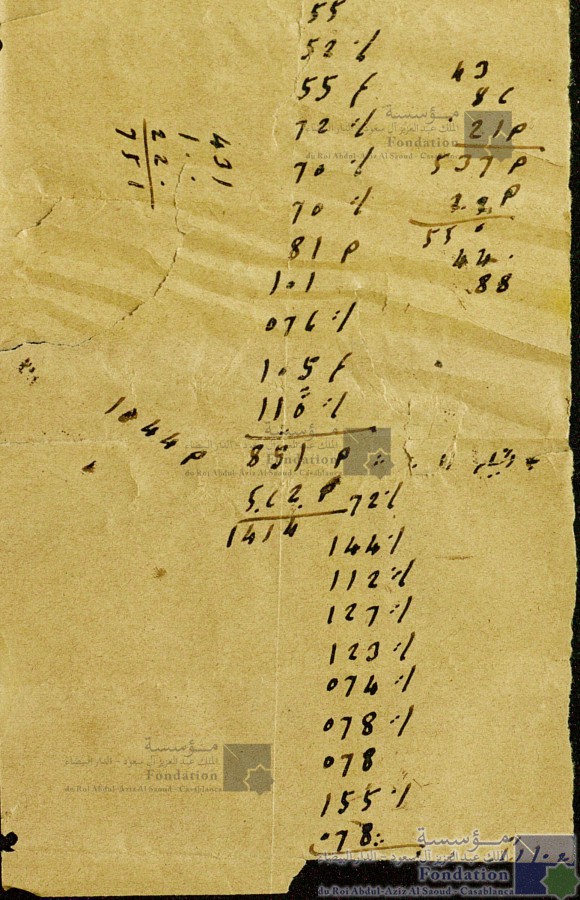 55
52 ٪
55
72 ٪
70 ٪
70 ٪
81 م
1.1
076 ٪
1.5
110 ٪
851 م
5.62. م
1414
1044 م
43
86
21 م
537 م
44.
88
431
1..
22.
751
72 ٪
144 ٪
112 ٪
127 ٪
123 ٪
074 ٪
078 ٪
078
155 ٪
078
مؤسسة
الملك عبد العزيز آل سعود - الدار البيضاء
Fondation
du Roi Abdul-Aziz Al Saoud - Casablanca
مؤسسة
الملك عبد العزيز آل سعود - الدار البيضاء
Fondation
du Roi Abdul-Aziz Al Saoud - Casablanca
مؤسسة
الملك عبد العزيز آل سعود - الدار البيضاء
Fondation
du Roi Abdul-Aziz Al Saoud - Casablanca
مؤسسة
الملك عبد العزيز آل سعود - الدار البيضاء
Fondation
du Roi Abdul-Aziz Al Saoud - Casablanca